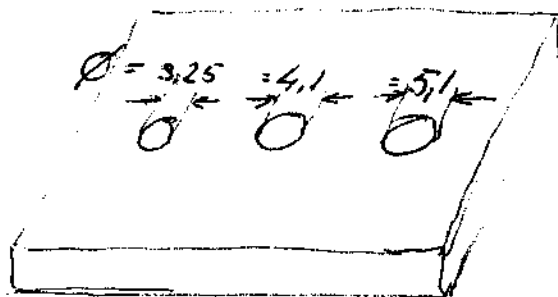 Ø = 3,25 = 4,1 = 5,1